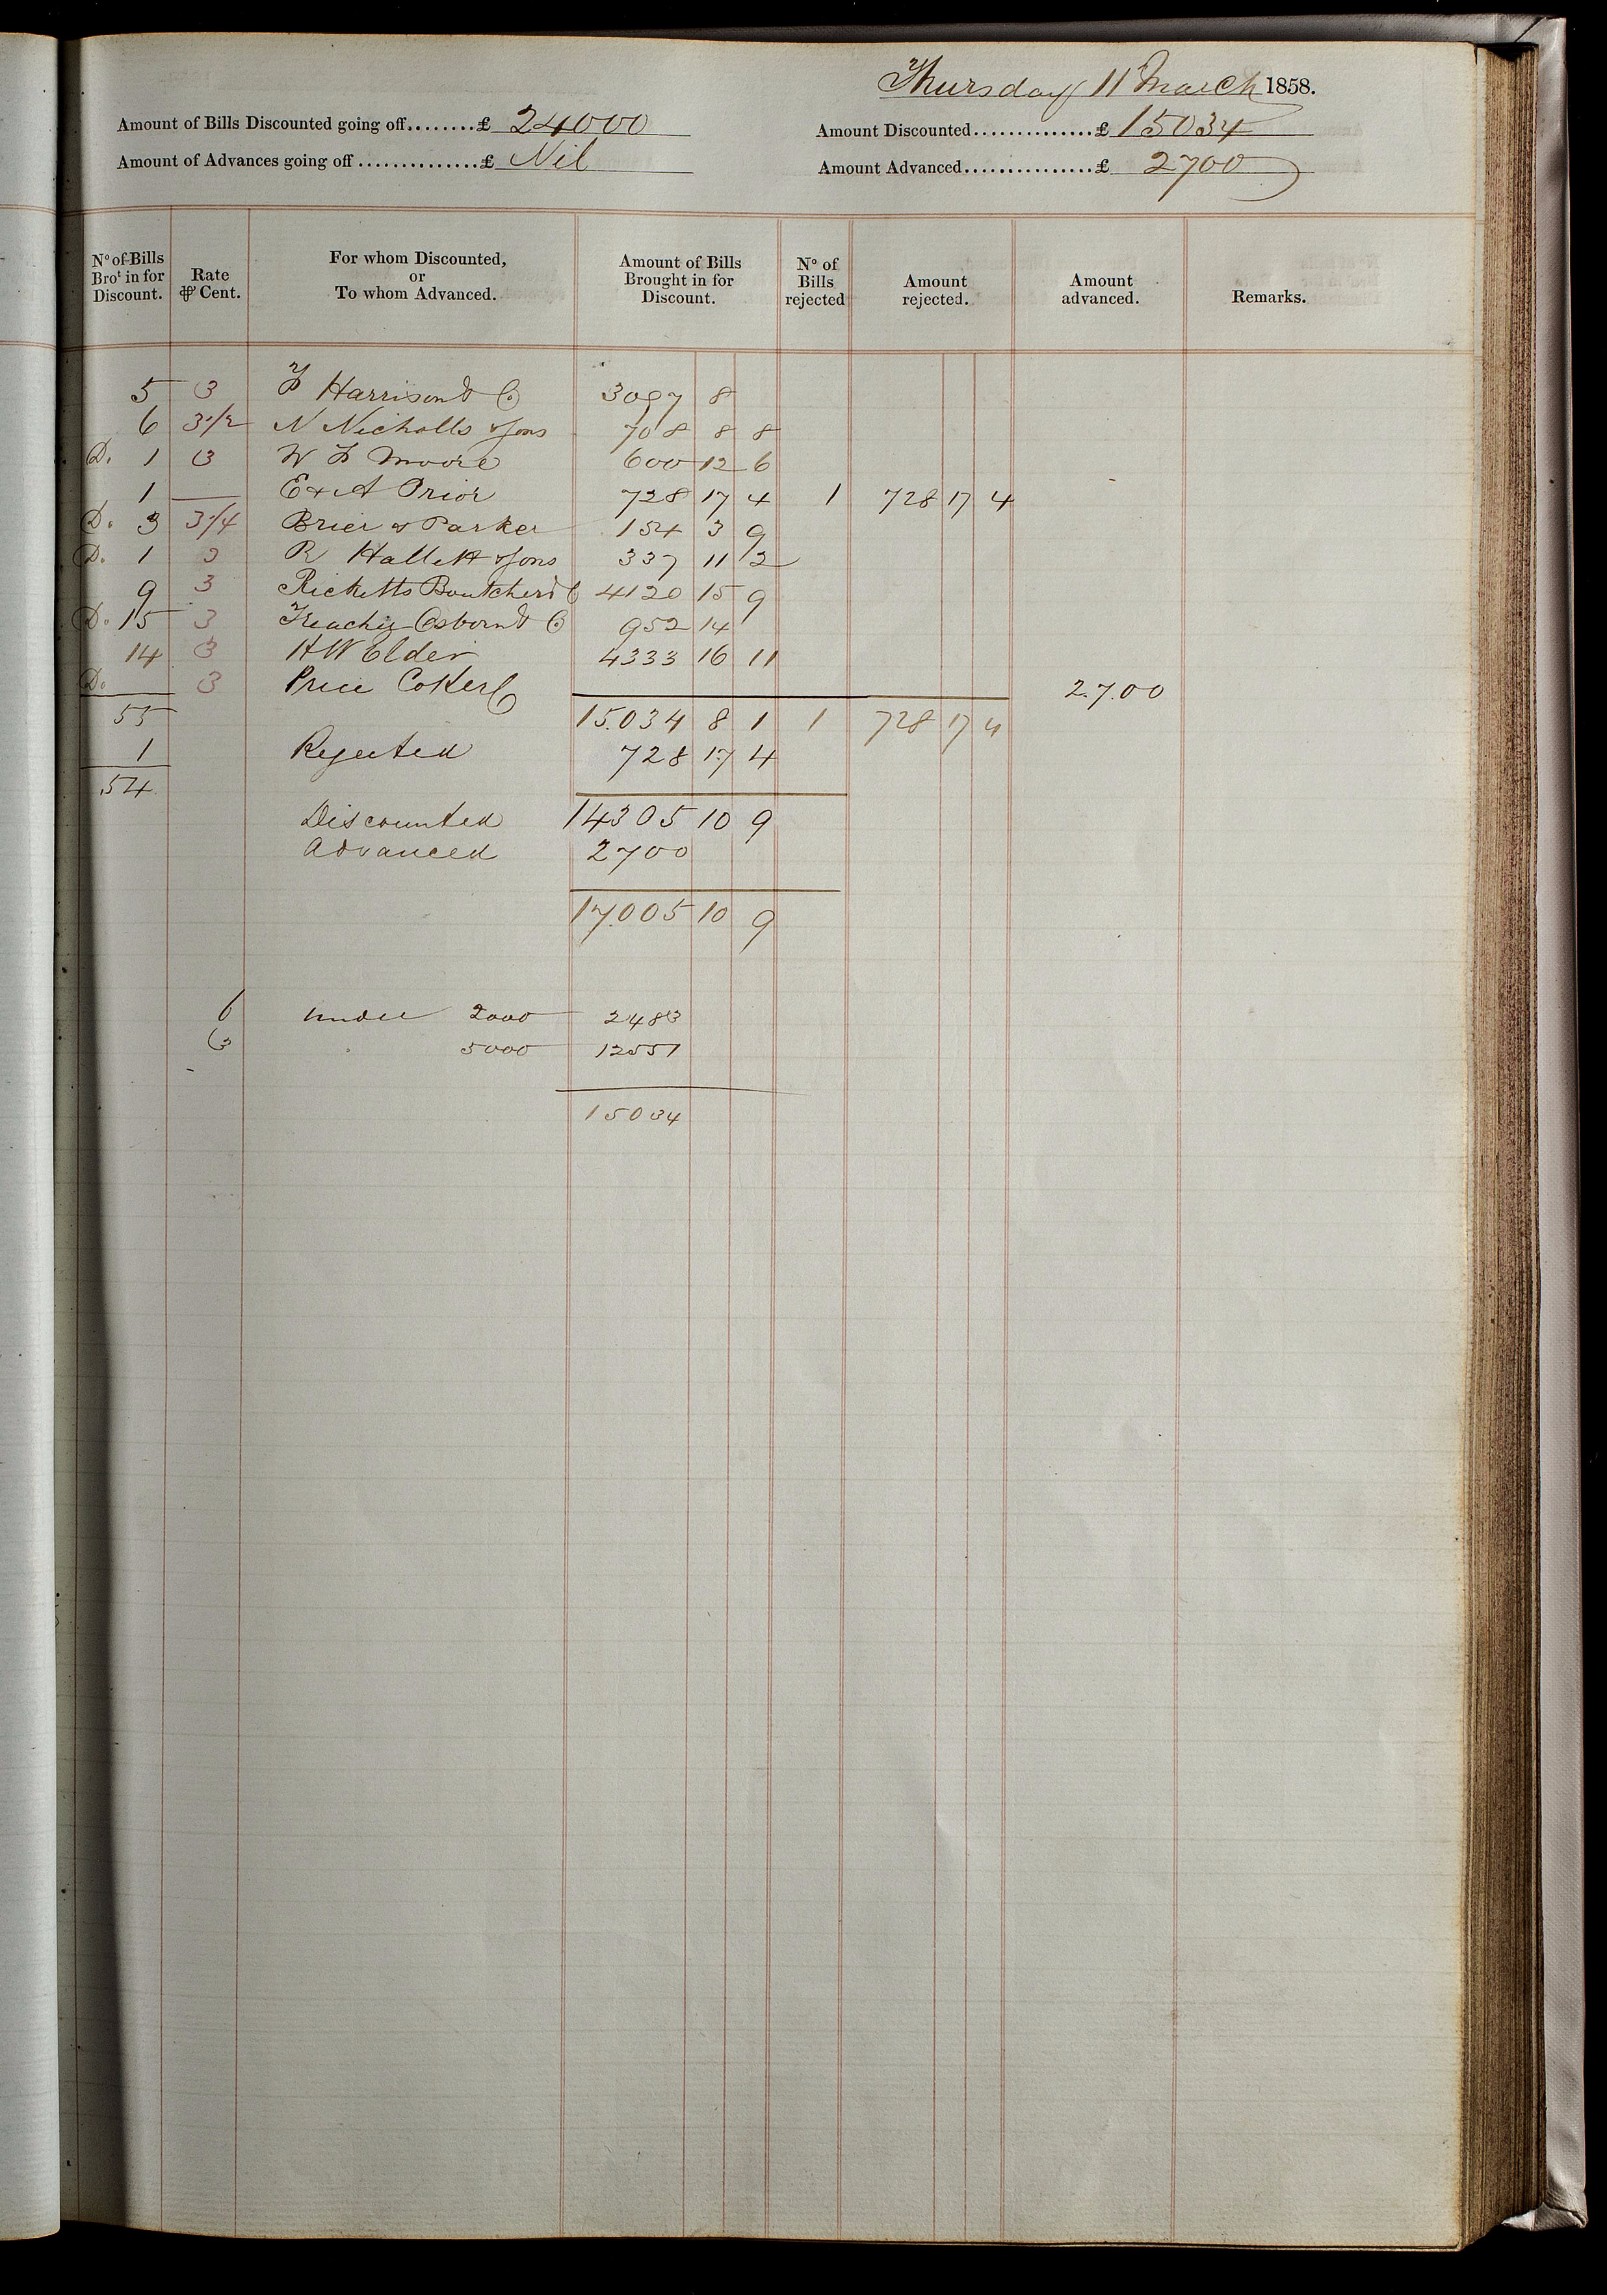 Thursday 11 March 1858.
Amount of Bills Discounted going off........£ 24000 Amount Discounted..............£ 15034
Amount of Advances going off..............£ Nil Amount Advanced...............£ 2700
Nº of Bills Broᵗ in for Discount. Rate ⅌ Cent. For whom Discounted, or To whom Advanced. Amount of Bills Brought in for Discount. Nº of Bills rejected Amount rejected. Amount advanced. Remarks.
5 3 F Harrison & Co 3097 8
6 3 1/2 N Nicholls & Sons 708 8 8
D. 1 3 W F Moore 600 12 6
1 — E & A Prior 728 17 4 1 728 17 4
D. 3 3 1/4 Brier & Parker 154 3 9
D. 1 3 R Hallett & Sons 337 11 2
9 3 Ricketts Boutcher & C 4120 15 9
D. 15 3 Treacher Osborn & Co 952 14
14 3 H W Elder 4333 16 11
D. 3 Price Coker C 2.7.00
55 15.034 8 1 1 728 17 4
1 Rejected 728 17 4
54
Discounted 14305 10 9
Advanced 2700
17.005 10 9
6 under 2000 2483
3 5000 12551
15034